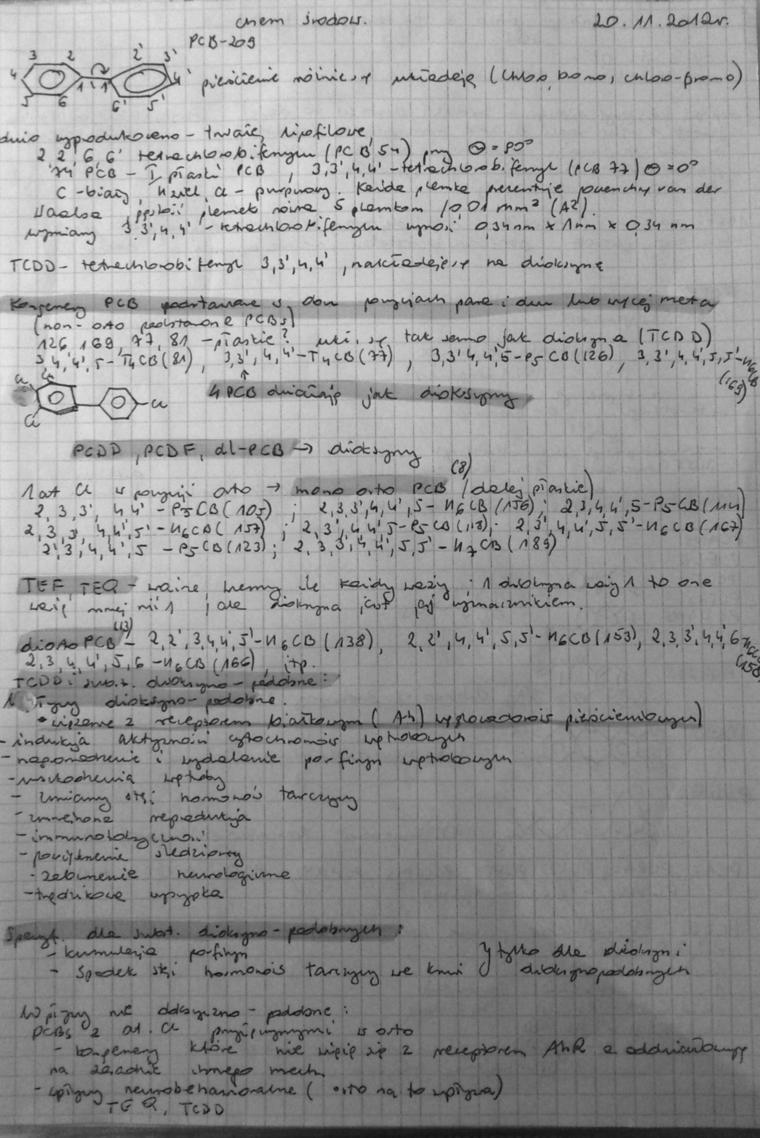 chem środow. 20.11.2012r.
PCB-209
3 2 2' 3'
4 1 1' 4' pierścienie różnie się układają (chloro, bromo, chloro-bromo)
5 6 6' 5'
wyprodukowano - trwałe, lipofilowe,
2,2',6,6' tetrachlorobifenylu (PCB 54) przy Θ = 90°
PCB - płaski PCB, 3,3',4,4'-tetrachlorobifenyl (PCB 77) Θ=0°
C - biały, H Cl - purpurowy. Każda plamka prezentuje powierzchnię van der
Waalsa, plamek równa 5 plamkom /0,01 nm² (A2).
wymiany 3,3',4,4'-tetrachlorobifenylu wynosi 0,34nm x 1nm x 0,34 nm
TCDD - tetrachlorobifenyl 3,3',4,4', nakłada się na dioksynę
Kongenery PCB podstawione w dwu pozycjach para i dwu lub więcej meta
(non-orto podstawione PCBs)
126, 169, 77, 81 - płaskie? ukł. się tak samo jak dioksyna (TCDD)
3,4,4',5-T4CB(81), 3,3',4,4'-T4CB(77), 3,3',4,4',5-P5CB(126), 3,3',4,4',5,5'-H6CB
(169)
Cl Cl 4 PCB działają jak dioksyny
Cl
PCDD, PCDF, dl-PCB → dioksyny
(8)
1 at Cl w pozycji orto → mono orto PCB (dalej płaskie)
2,3,3',4,4'-P5CB(105); 2,3,3',4,4',5-H6CB(156); 2,3,4,4',5-P5CB(114)
2,3,3',4,4',5'-H6CB(157); 2,3',4,4',5-P5CB(118); 2,3',4,4',5,5'-H6CB(167)
2',3,4,4',5-P5CB(123); 2,3,3',4,4',5,5'-H7CB(189)
TEF, TEQ - ważne, wiemy ile każdy waży; 1 dioksyna waży 1 to one
ważą mniej niż 1, ale dioksyna jest jej wyznacznikiem.
(13)
diorto PCB - 2,2',3,4,4',5'-H6CB(138), 2,2',4,4',5,5'-H6CB(153), 2,3,3',4,4',6-H6CB
(158)
2,3,4,4',5,6-H6CB(166), itp.
TCDD i subst. dioksyno-podobne:
1. Wpływy dioksyno-podobne.
• wiązanie z receptorem białkowym (Ah) węglowodorów pierścieniowych)
- indukcja aktywności cytochromów wątrobowych
- nagromadzenie i wydalanie porfiryn wątrobowych
- uszkodzenia wątroby
- zmiany stęż. hormonów tarczycy
- zmniejszona reprodukcja
- immunotoksyczność
- powiększenie śledziony
- zaburzenie neurologiczne
- trądzikowa wysypka
Specyf. dla subst. dioksyno-podobnych:
- kumulacja porfiryn
- Spadek stęż. hormonów tarczycy we krwi } tylko dla dioksyn i dioksynopodobnych
Wpływy nie dioksyno-podobne:
PCBs z at. Cl przyłączonymi w orto
- kongenery które nie wiążą się z receptorem AhR a oddziałowują
na zasadzie innego mech.
- wpływy neurobehawioralne (orto na to wpływa)
TEQ, TCDD